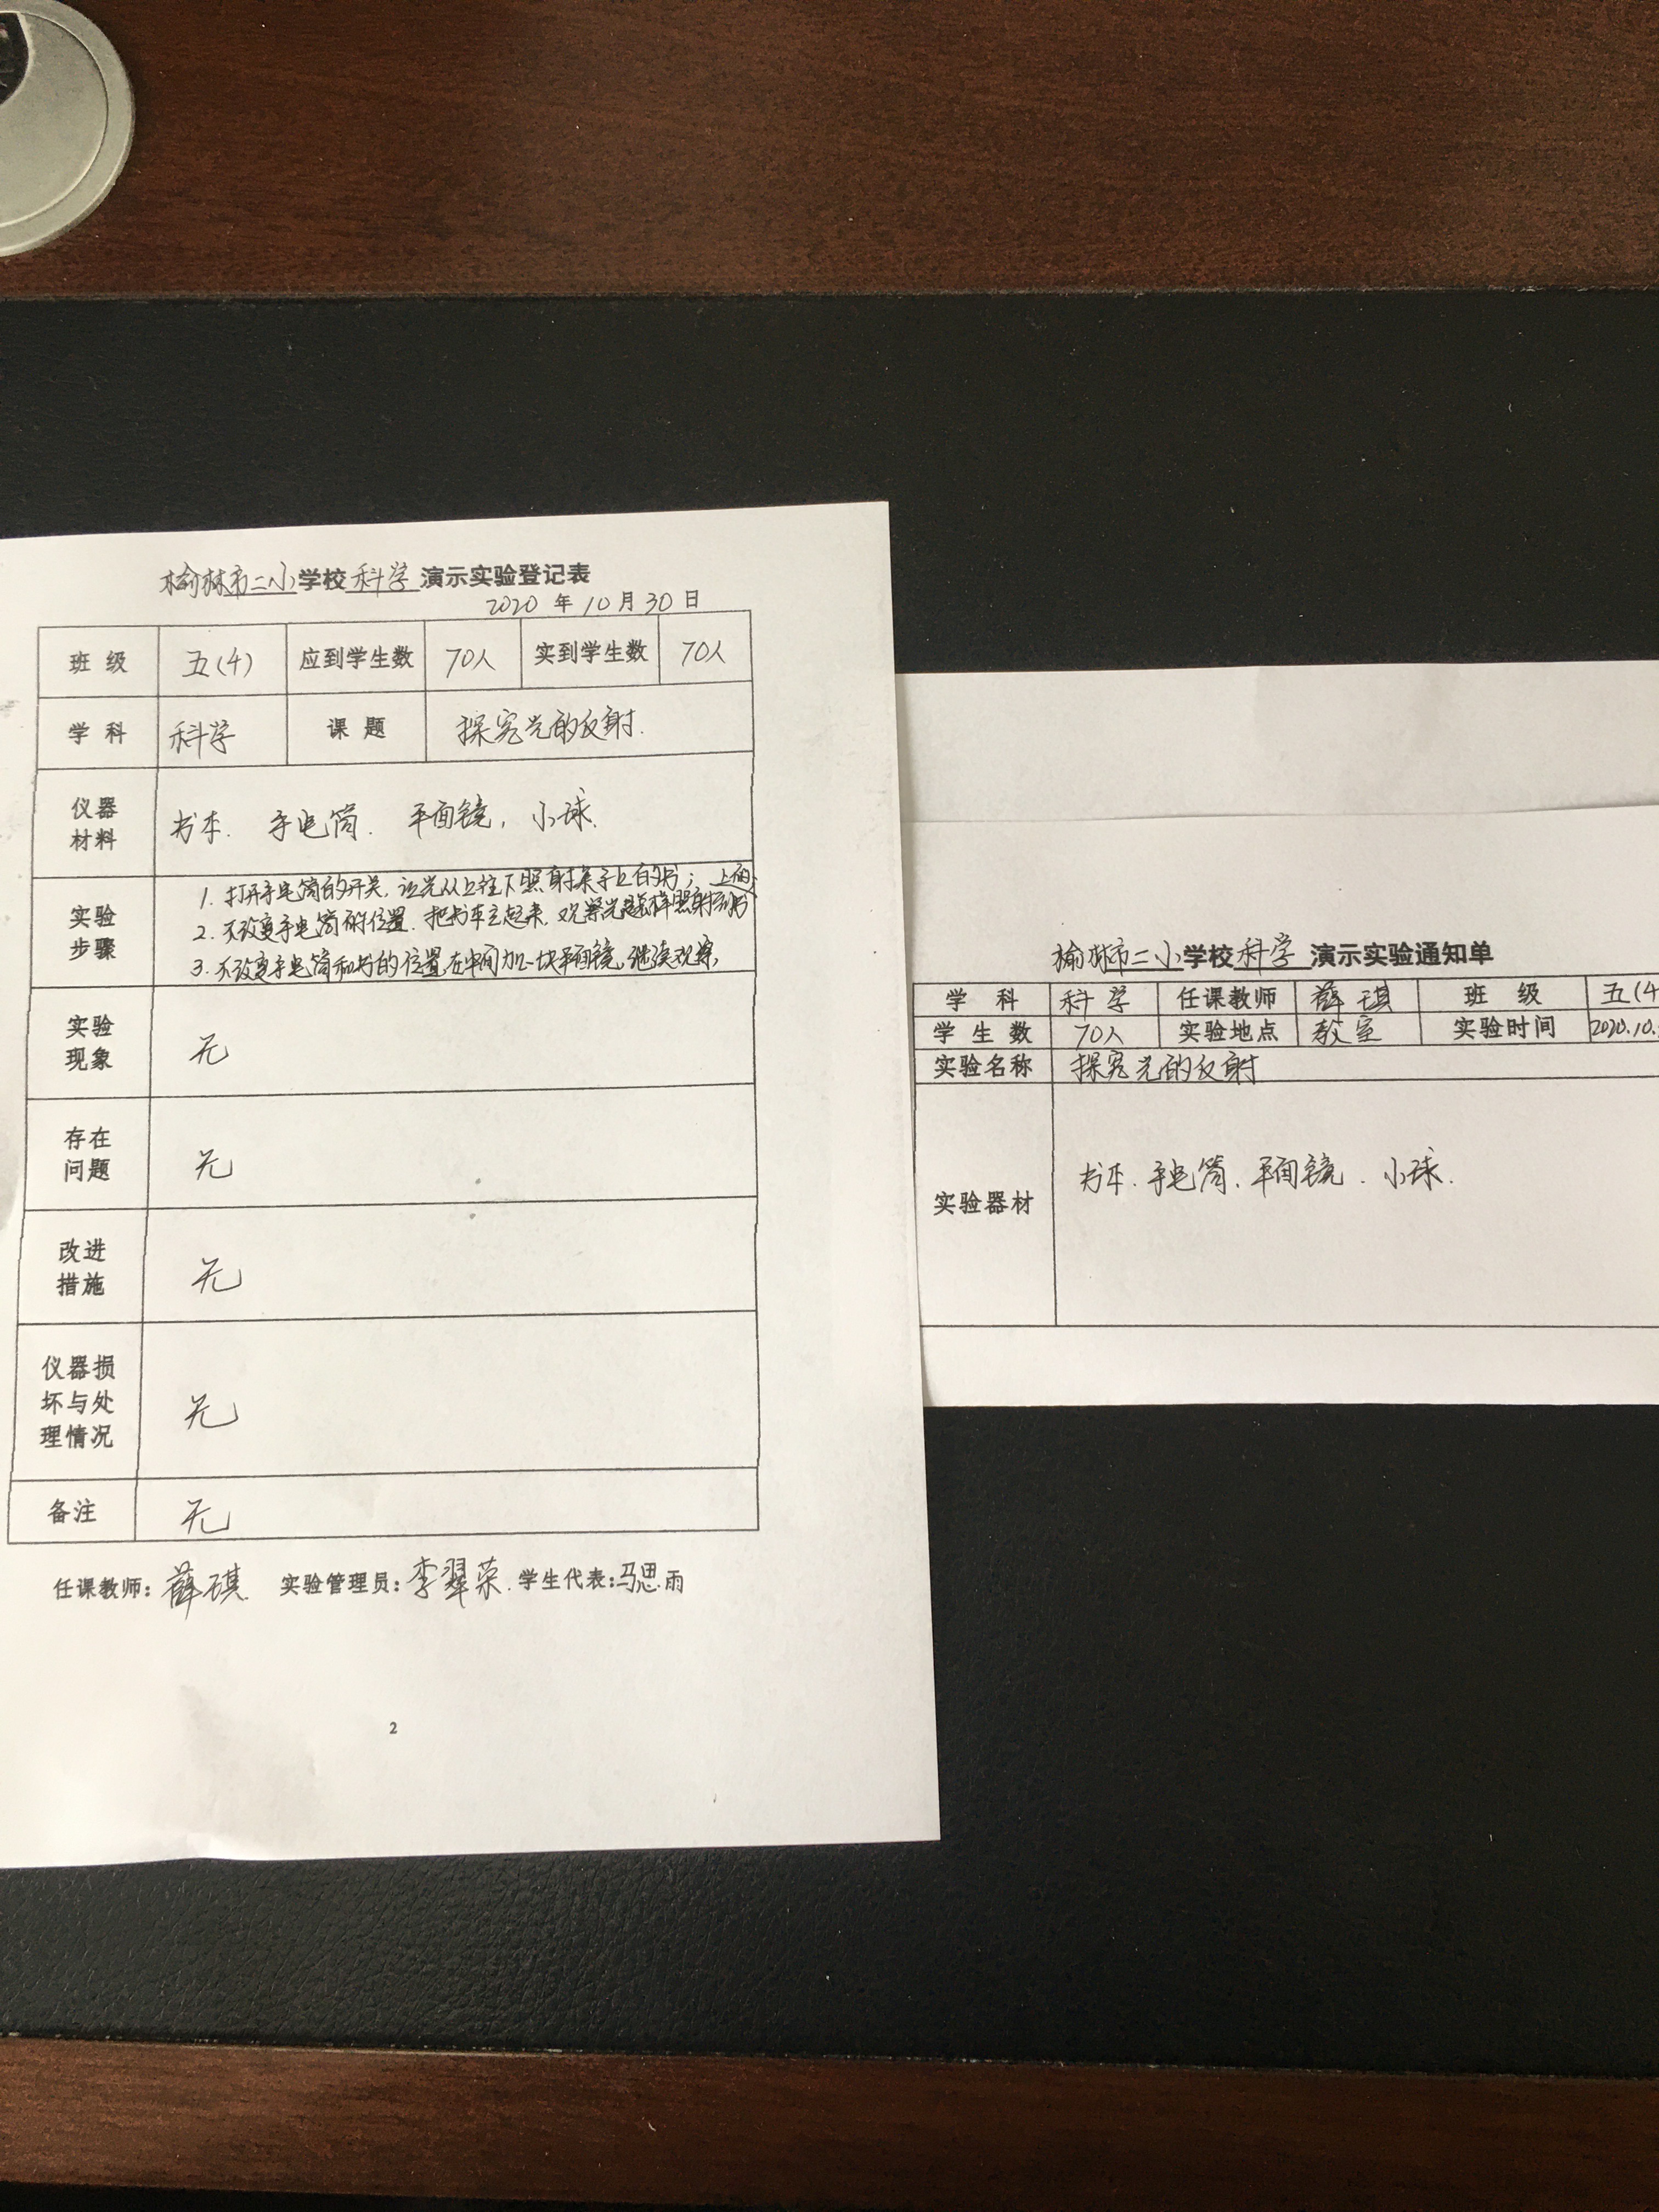 榆林市二小学校科学演示实验登记表
2020年10月30日
班级 五(4) 应到学生数 70人 实到学生数 70人
学科 科学 课题 探究光的反射.
仪器材料 书本. 手电筒. 平面镜, 小球.
实验步骤
1. 打开手电筒的开关,让光从上往下照射桌子上的书;
2. 不改变手电筒的位置.把书本立起来,观察光是怎样照射到书上的
3. 不改变手电筒和书的位置,在中间加一块平面镜,继续观察,
实验现象 无
存在问题 无
改进措施 无
仪器损坏与处理情况 无
备注 无
任课教师: 薛琪 实验管理员: 李翠荣. 学生代表: 马思雨
2
榆林市二小学校科学演示实验通知单
学科 科学 任课教师 薛琪 班级 五(4
学生数 70人 实验地点 教室 实验时间 2020.10.
实验名称 探究光的反射
实验器材 书本.手电筒.平面镜.小球.